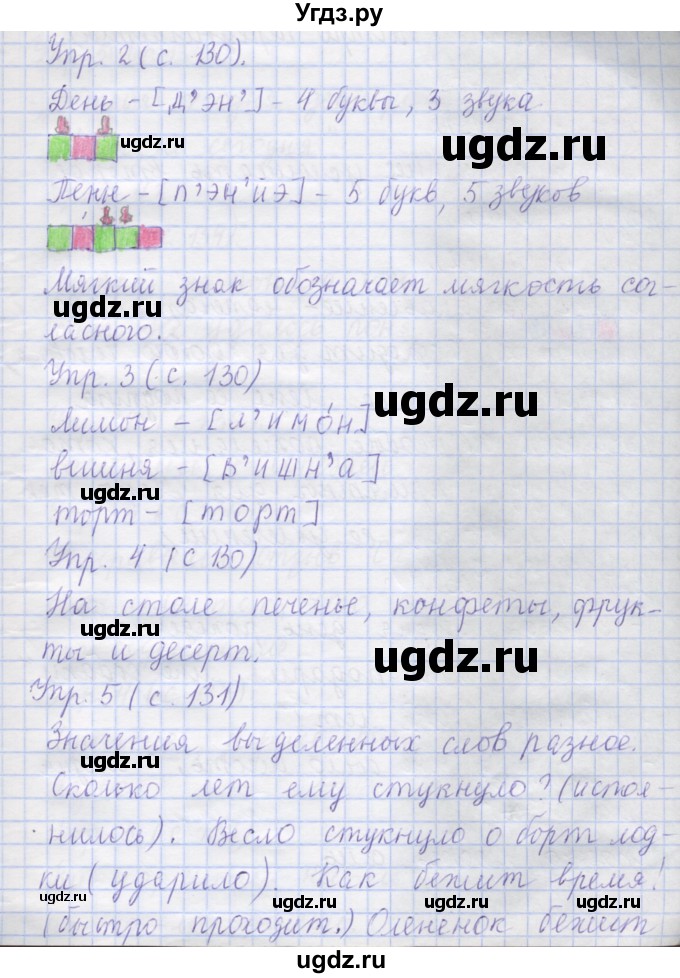 Угдз.ру
Упр. 2 (с. 130).
День - [д’эн’] - 4 буквы, 3 звука
ugdz.ru
ugdz.ru
Пенье - [п’эн’йэ] - 5 букв, 5 звуков
Мягкий знак обозначает мягкость сог-
ugdz.ru
ласного.
Упр. 3 (с. 130)
ugdz.ru
Лимон - [л’имо́н]
вишня - [в’ишн’а]
ugdz.ru
торт - [торт]
Упр. 4 (с 130)
На столе печенье, конфеты, фрук-
ugdz.ru
ты и десерт.
ugdz.ru
Упр. 5 (с. 131)
Значения выделенных слов разное.
ugdz.ru
Сколько лет ему стукнуло? (испол-
нилось). Весло стукнуло о борт лод-
ки (ударило). Как бежит время!
ugdz.ru
ugdz.ru
ugdz.ru
(быстро проходит.) Олененок бежит
ugdz.ru